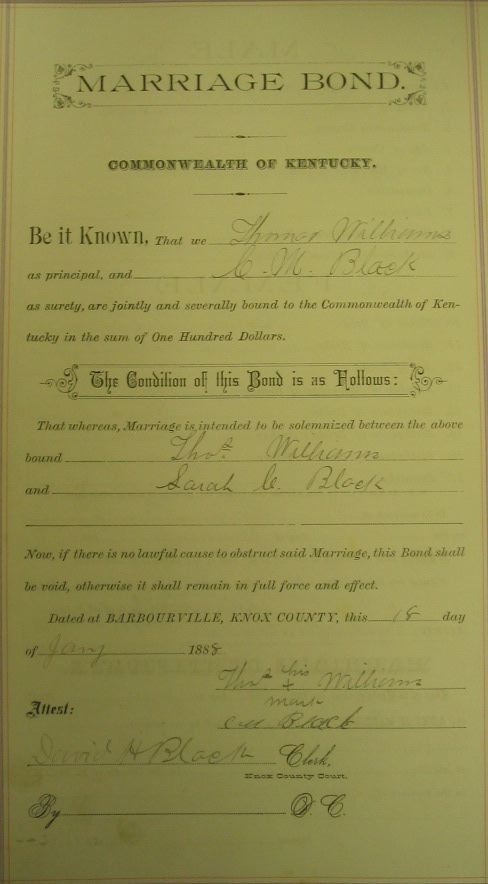 MARRIAGE BOND.
COMMONWEALTH OF KENTUCKY.
Be it Known, That we Thomas Williams
as principal, and C. M. Black
as surety, are jointly and severally bound to the Commonwealth of Ken-
tucky in the sum of One Hundred Dollars.
The Condition of this Bond is as Follows:
That whereas, Marriage is intended to be solemnized between the above
bound Thos Williams
and Sarah C. Black
Now, if there is no lawful cause to obstruct said Marriage, this Bond shall
be void, otherwise it shall remain in full force and effect.
Dated at BARBOURVILLE, KNOX COUNTY, this 18 day
of Jany 1888
Thos his + Williams
mark
Attest:
CM Black
David H Black Clerk,
Knox County Court.
By D. C.